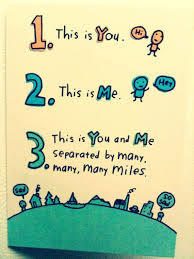 1. This is You. Hi
2. This is Me. Hey
3. This is You and Me
separated by many,
many, many miles.
Sad
So Sad